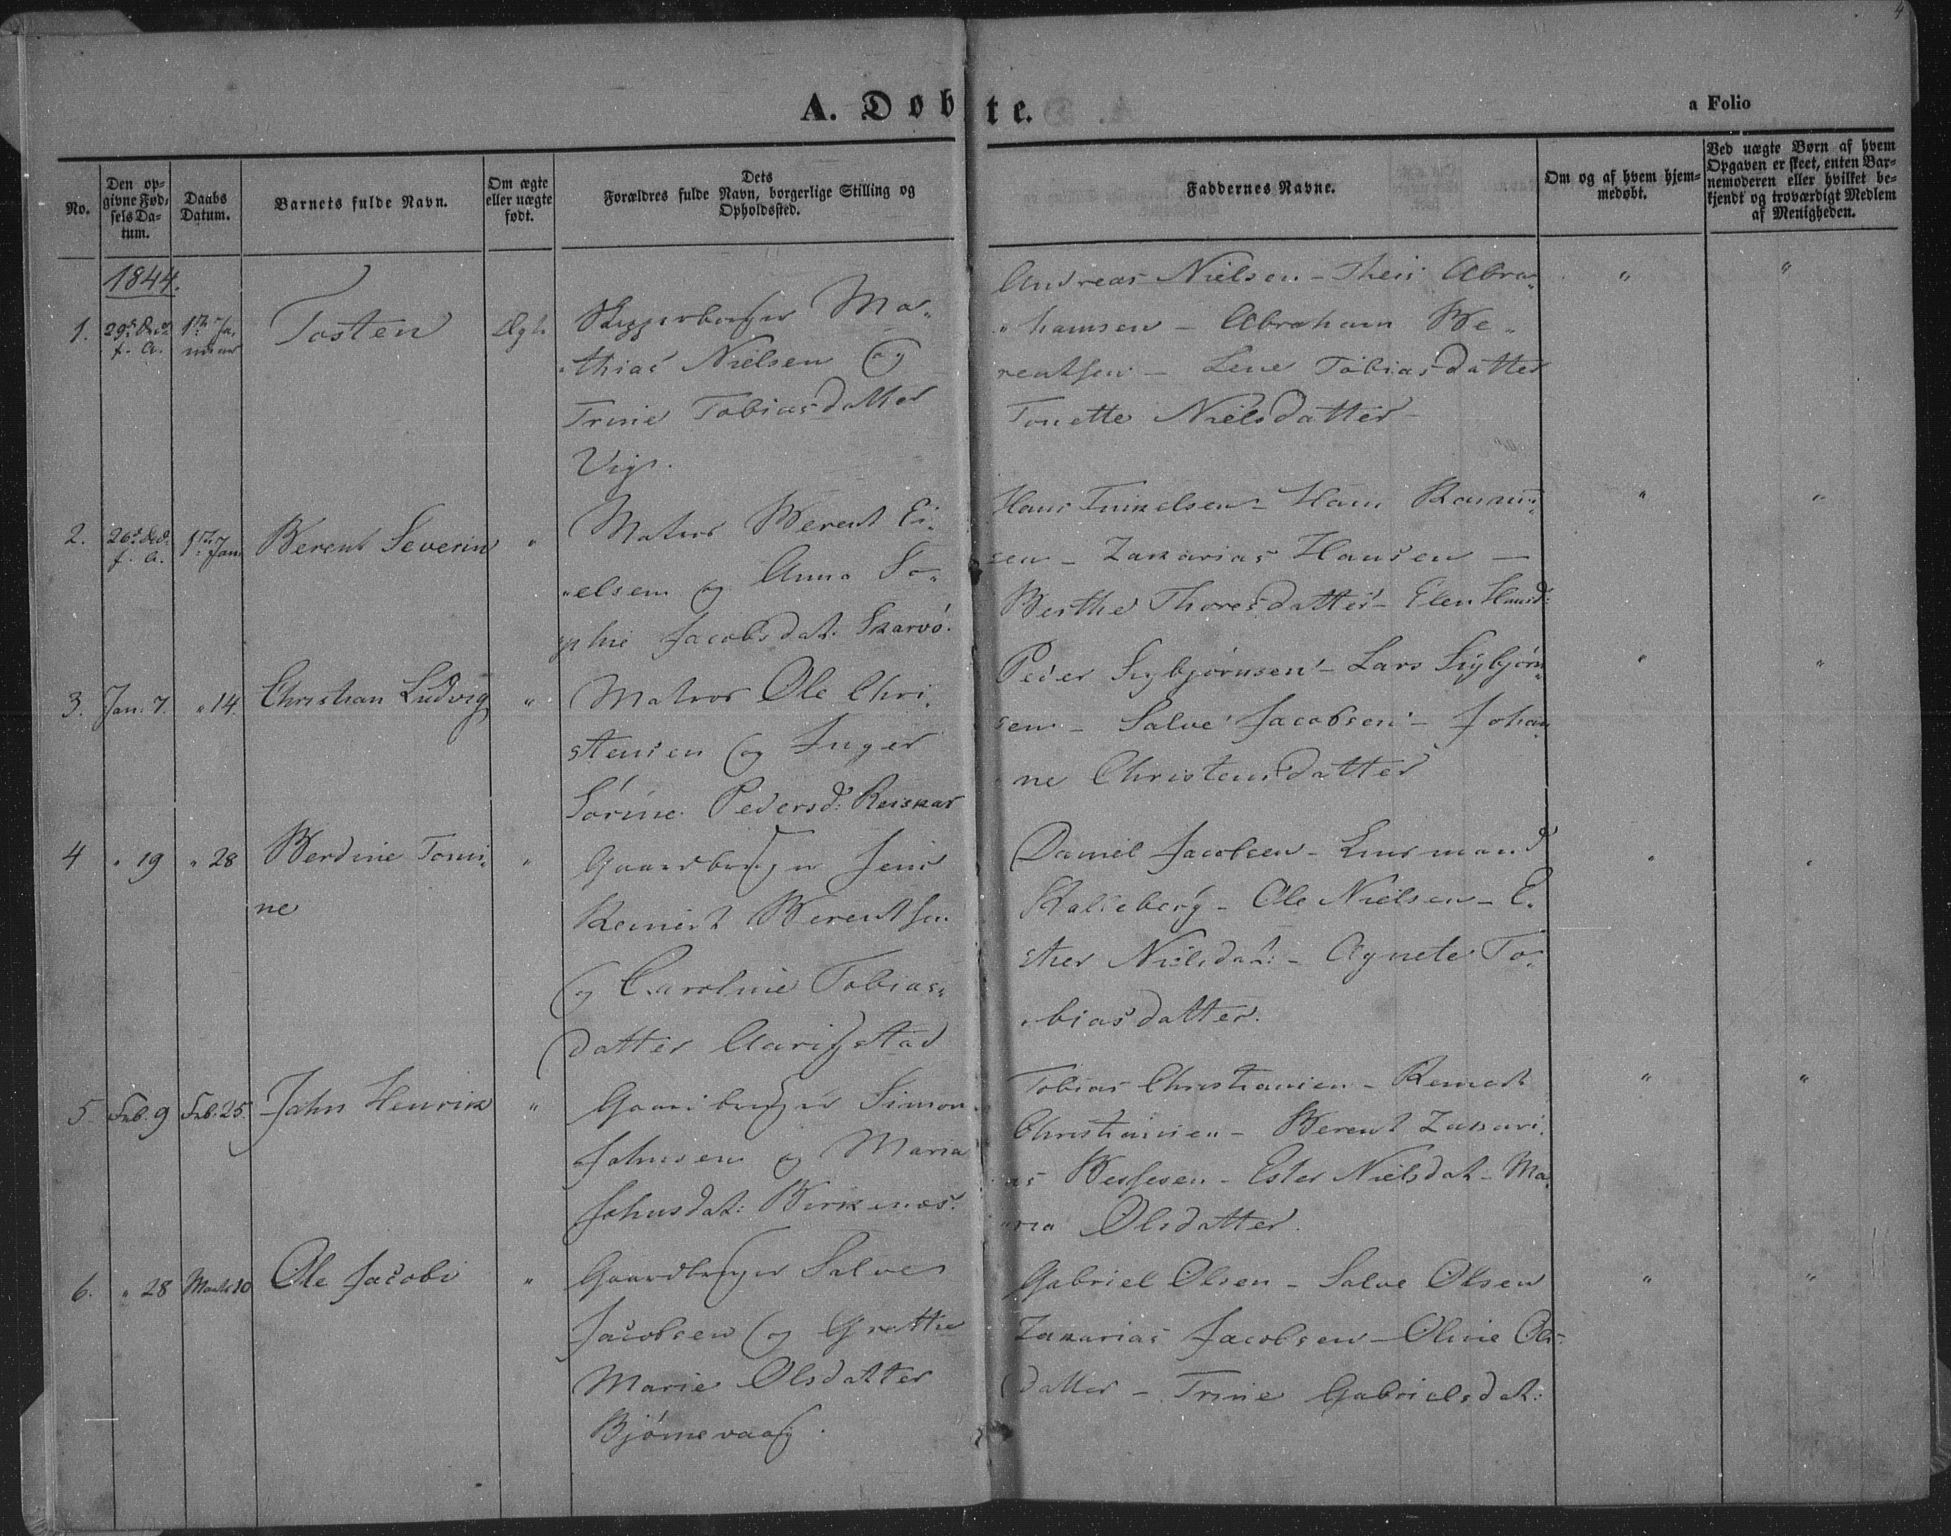 4
A. Døbte.
a Folio
No.
Den opgivne Fødselsdatum.
Daabs Datum.
Barnets fulde Navn.
Om ægte eller uægte født.
Dets Forældres fulde Navn, borgerlige Stilling og Opholdssted.
Faddernes Navne.
Om og af hvem hjemmedøbt.
Ved uægte Børn af hvem Opgaven er skeet, enten Barnemoderen eller hvilket bekjendt og troværdigt Medlem af Menigheden.
1844.
1. 29d Dec. f. A. 1ste Januar Tosten Ægte
Ma-
thias Nielsen og
Trine Tobiasdatter
Vige.
Andreas Nielsen - Theis Abra-
hamsen - Abraham Be-
rentsen - Lene Tobiasdatter
Tonette Nielsdatter -
" "
2. 26d Dec. f. a. 1ste Jan. Berent Severin "
Matros Berent Ei-
elsen og Anna So-
phie Jacobsdat. Skarvø.
Hans Hans
sen - Zakarias Hansen -
Berthe Thoresdatter - Elen Hansd:
" "
3. Jan. 7. " 14. Christian Ludvig "
Matros Ole Chri-
stensen og Inger
Sørine Pedersd: Reiskar
Peder Sigbjørnsen - Lars Sigbjørn-
sen - Salve Jacobsen - Johan-
ne Christensdatter
" "
4 " 19 " 28 Berdine Tomi-
ne "
Gaardbruger Jens
Reinert Berentsen
og Caroline Tobias-
datter Aarigstad
Daniel Jacobsen -
- Ole Nielsen - E-
ster Nielsdat: - Agnete To-
biasdatter.
" "
5. Feb. 9 Feb. 25. John Henrik "
Gaardbruger Simon
Johnsen og Maria
Johnsdat: Birkenæs.
Tobias Christiansen - Reinert
Christiansen - Berent Zakari-
as Bessesen - Ester Nielsdat - Ma-
ria Olsdatter.
" "
6. " 28 Marts 10 Ole Jacobi "
Gaardbruger Salve
Jacobsen og Grethe
Marie Olsdatter
Bjørnevaag.
Gabriel Olsen - Salve Olsen
Zakarias Jacobsen - Oline Ols-
datter - Trine Gabrielsdat:
" "